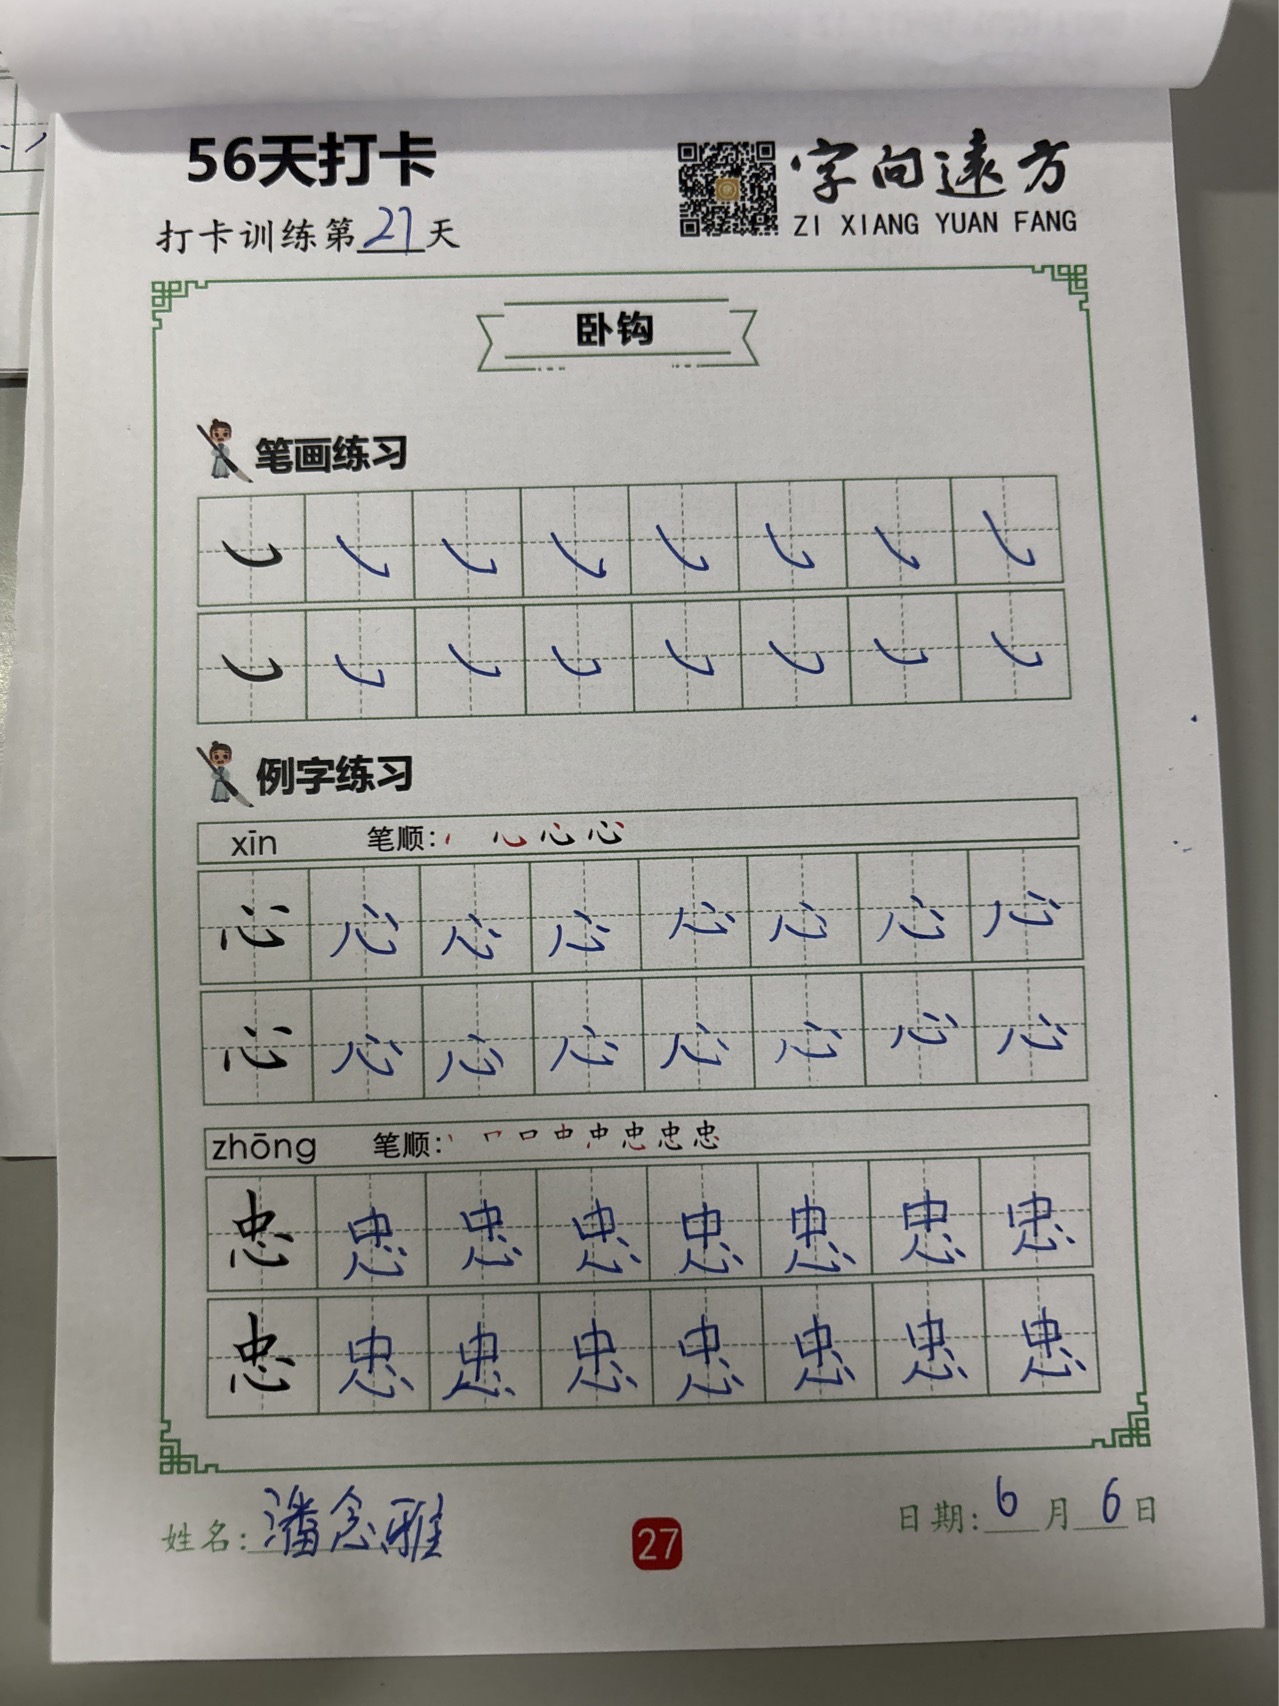 56天打卡
字向远方
ZI XIANG YUAN FANG
打卡训练第27天
卧钩
笔画练习
㇃ ㇃ ㇃ ㇃ ㇃ ㇃ ㇃ ㇃
㇃ ㇃ ㇃ ㇃ ㇃ ㇃ ㇃ ㇃
例字练习
xīn 笔顺: 心 心 心
心 心 心 心 心 心 心 心
心 心 心 心 心 心 心 心
zhōng 笔顺: 丨 冖 口 中 中 忠 忠 忠
忠 忠 忠 忠 忠 忠 忠 忠
忠 忠 忠 忠 忠 忠 忠 忠
姓名: 潘念雅
27
日期: 6月6日